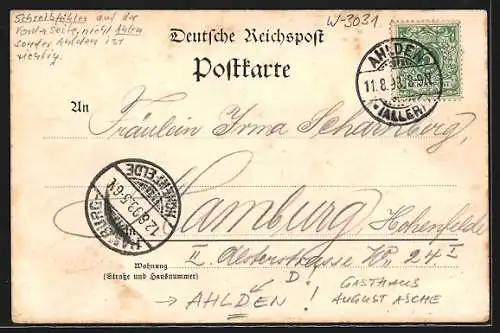 Schreibfehler auf der
Vorderseite, nicht Ahlen
sondern Ahlden ist
richtig.
W-3031
Deutsche Reichspost
Postkarte
AHLDEN
11.8.98. 8-9N
*(ALLER)
An
Fräulein Irma Scharnberg,
HAMBURG-HOHENFELDE
12.8.98. 5-6N
Hamburg, Hohenfelde
II. Alsterstrasse No 24 I
D.
Wohnung
(Straße und Hausnummer)
→ AHLDEN ! GASTHAUS
AUGUST ASCHE